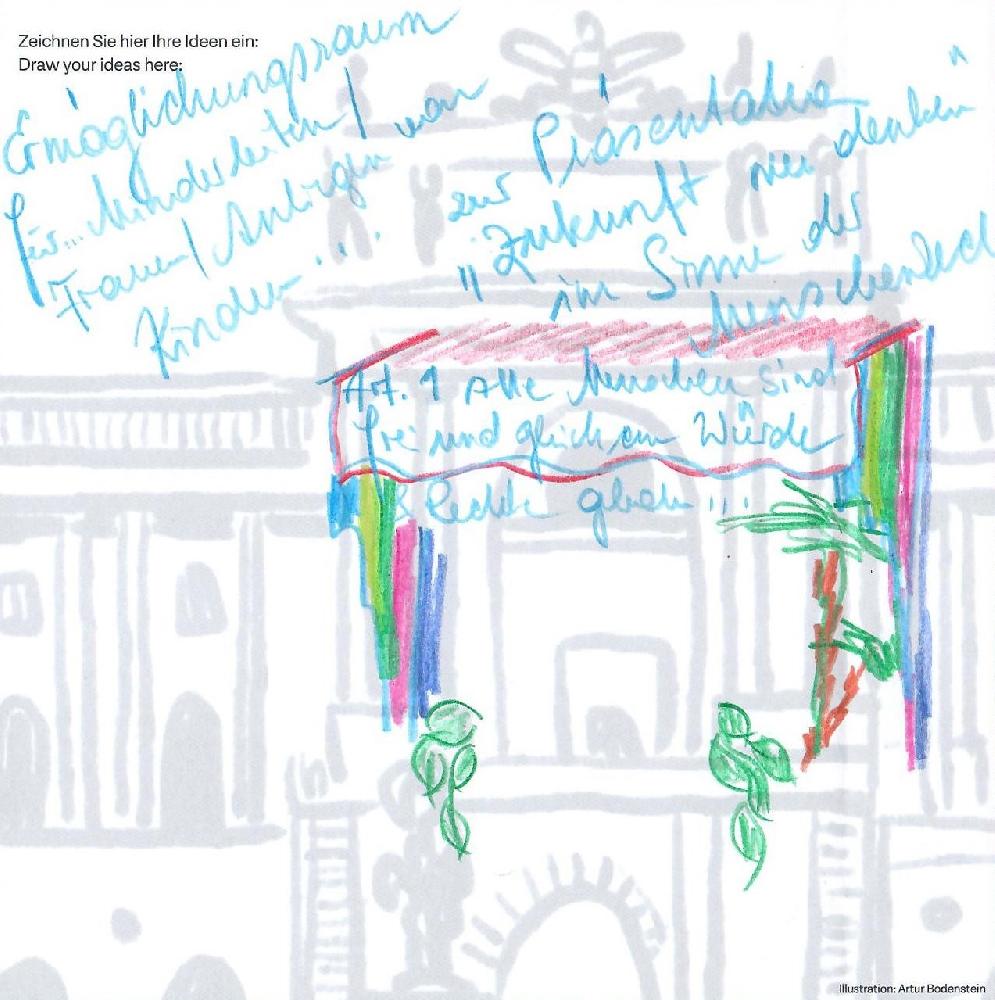 Zeichnen Sie hier Ihre Ideen ein:
Draw your ideas here:
Ermöglichungsraum
für... Minderheiten / von
Frauen / Anliegen
Kinder...
zur Präsentation
"Zukunft neu denken"
im Sinne der
Menschenrech
Art. 1 Alle Menschen sind
frei und gleich an Würde
& Rechte gebor...
Illustration: Artur Bodenstein